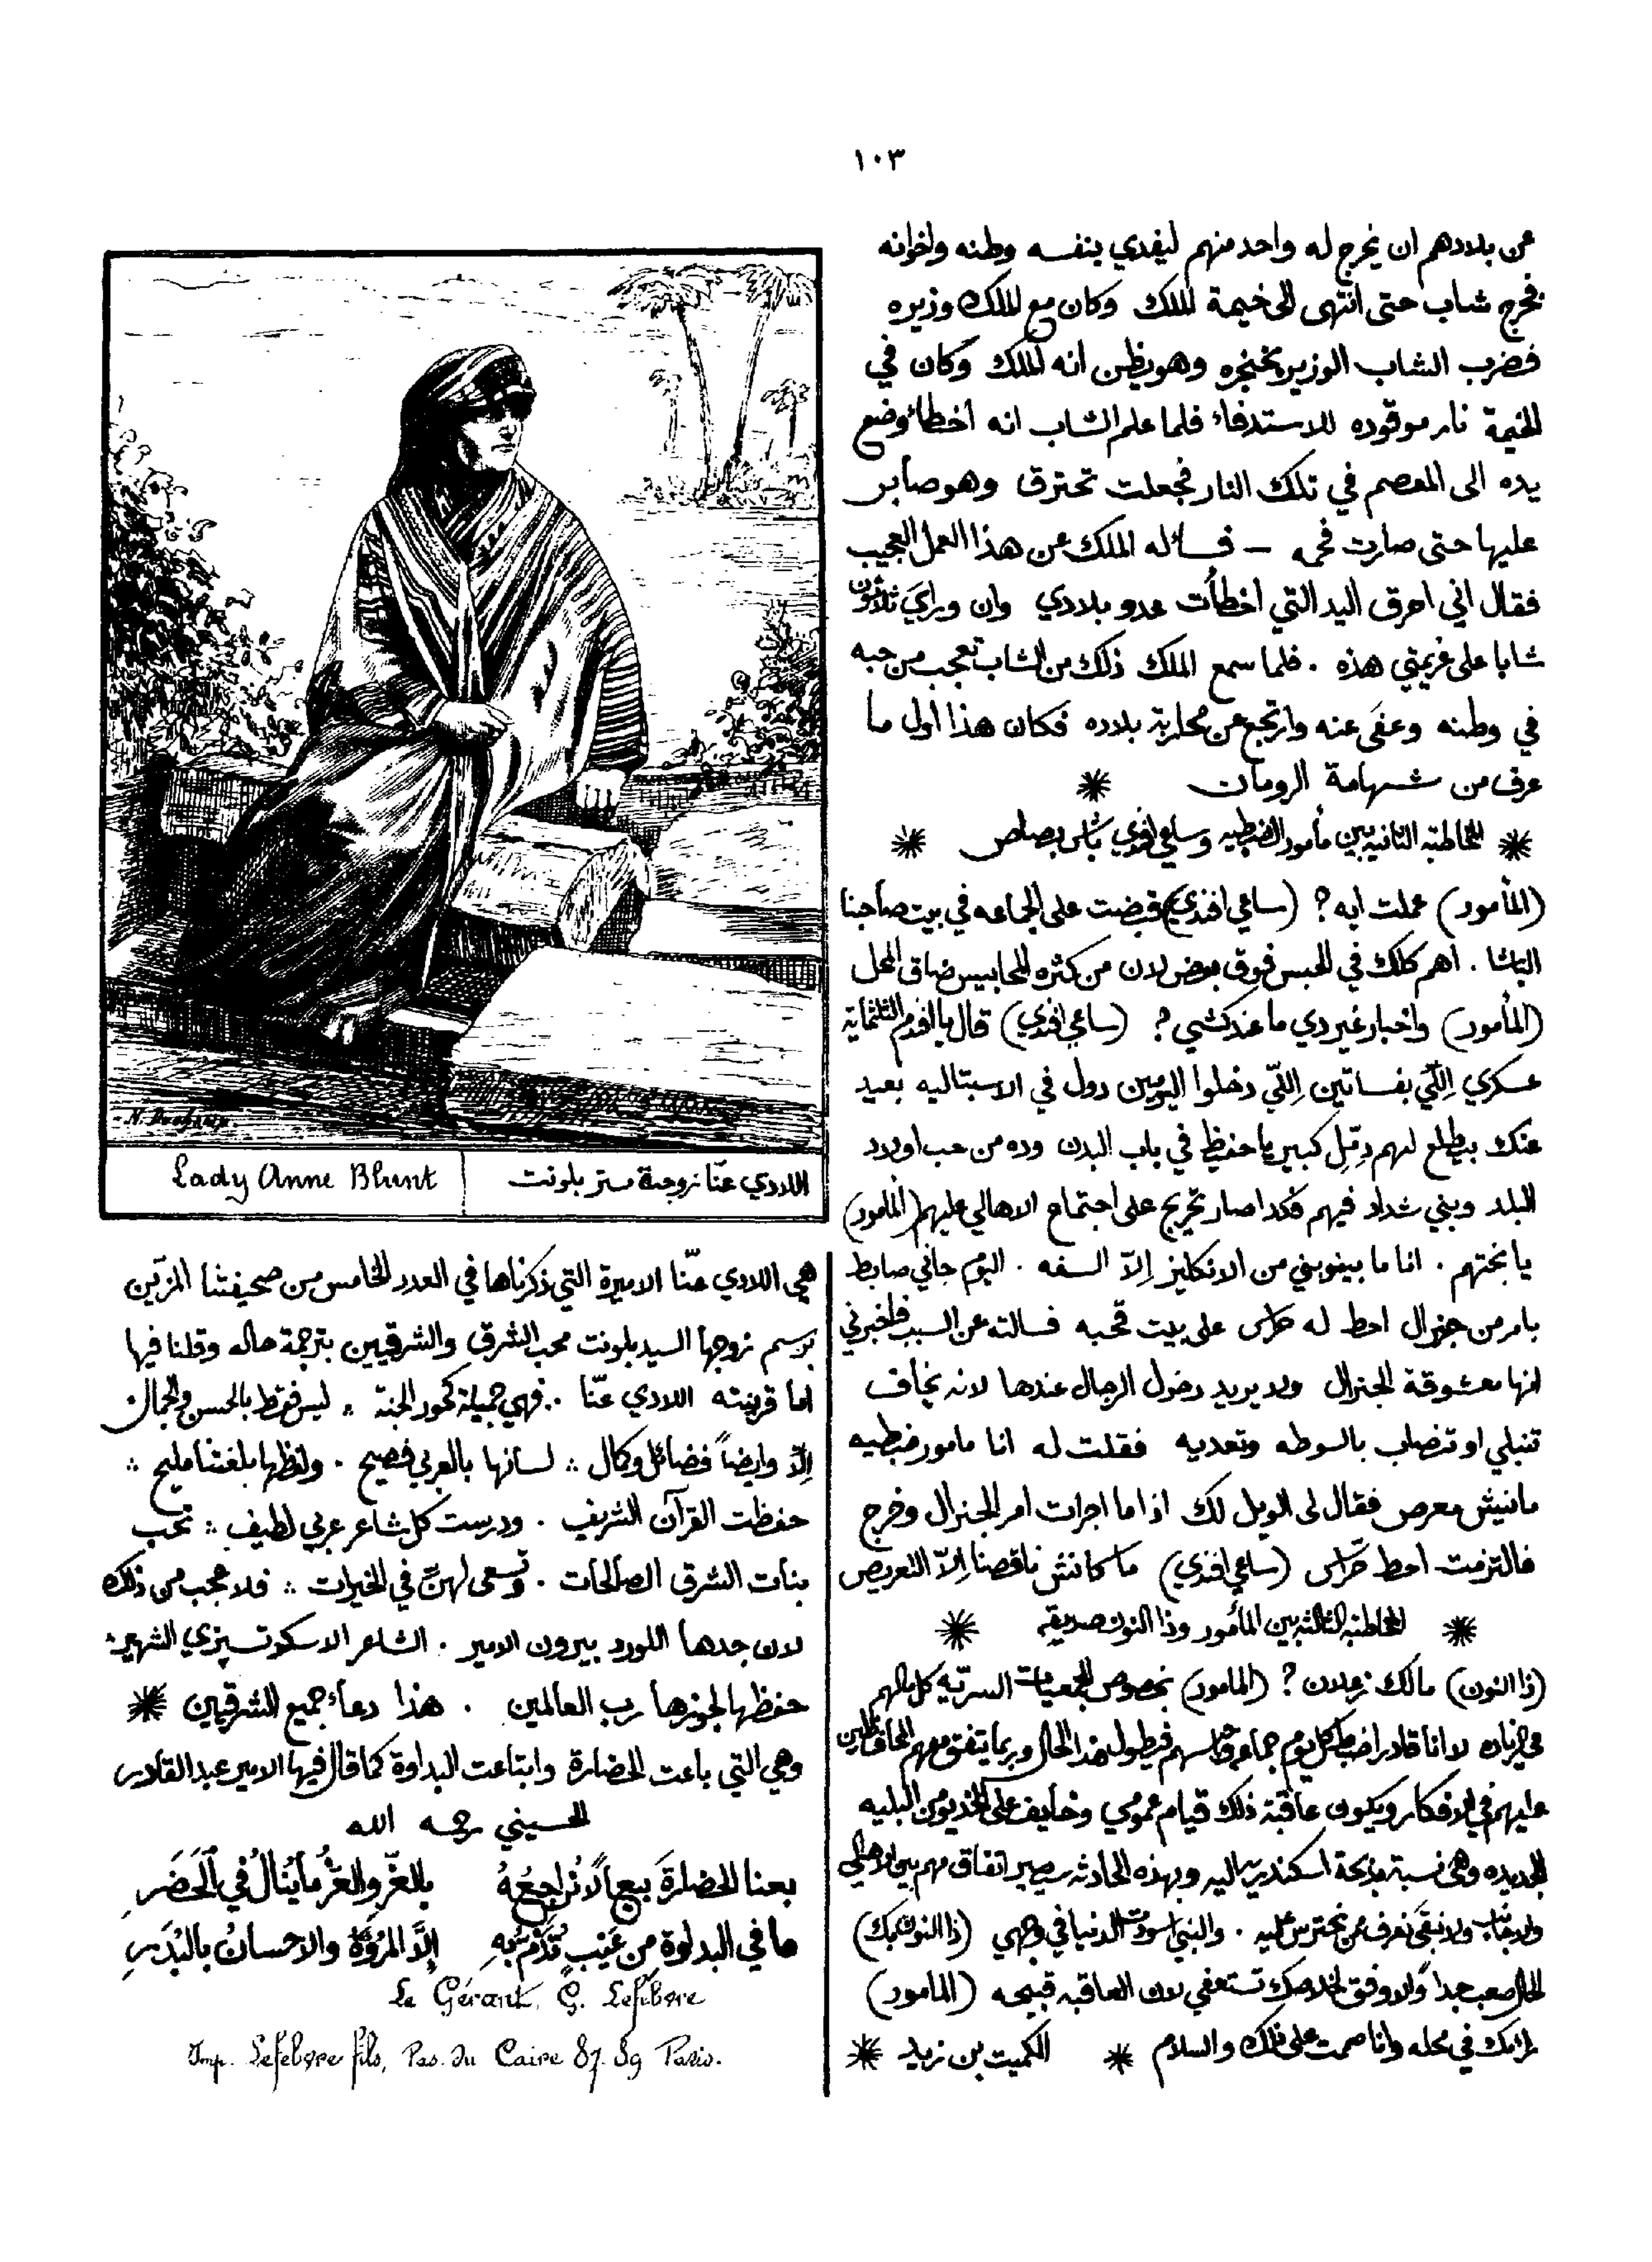 ١٠٣
عن بلادهم ان يخرج له واحد منهم ليفدي بنفسه وطنه واخوانه
فخرج شاب حتى انتهى الى خيمة الملك وكان مع الملك وزيره
فضرب الشاب الوزير بخنجره وهو يظن انه الملك وكان في
الخيمة نار موقوده للاستدفاء فلما علم الشاب انه اخطأ وضع
يده الى المعصم في تلك النار فجعلت تحترق وهو صابر
عليها حتى صارت فحمه – فسأله الملك عن هذا العمل العجيب
فقال اني احرق اليد التي اخطأت عدو بلادي وان ورايَ ثلاثون
شابا على عزيمتي هذه . فلما سمع الملك ذلك من الشاب تعجب من حبه
في وطنه وعفى عنه وارتجع عن محاربة بلاده فكان هذا اول ما
عرف من شهامة الرومان *
* المخاطبه الثانيه بين مأمور الضبطيه وساعي افندي باش بصاص *
(المأمور) عملت ايه ? (ساعي افندي) قبضت على الجماعه في بيت صاحبنا
الباشا . اهم كلك في الحبس فوق بعض لان من كثره المحابيس ضاق المحل
(المأمور) واخبار غير دي ما عندكشي ? (ساعي افندي) قال يا افندم الثلثماية
عسكري اللّي بفساتين اللّي دخلوا اليومين دول في الاسبتاليه بعيد
عنك بيطلع لهم دمّل كبير يا حفيظ في باب البدن وده من حب اولاد
البلد وبني شداد فيهم فكدا صار تحريج على اجتماع الاهالي عليهم (المامور)
يا بختهم . انا ما بينوبني من الانكليز إلاّ السفه . اليوم جاني ضابط
بامر من جنرال احط له حراس على بيت قحبه فسالته عن السبب فاخبرني
انها معشوقة الجنرال ولا يريد دخول الرجال عندها لانه يخاف
تنبلي او تنصاب بالسوطه وتعديه فقلت له انا مامور ضبطيه
مانيش معرص فقال لى الويل لك اذا ما اجرات امر الجنرال وخرج
فالتزمت احط حرّاس (ساعي افندي) ما كانش ناقصنا إلاّ التعريص
* المخاطبه الثالثه بين المأمور وذا النون صديقه *
(ذا النون) مالك زعلان ? (المامور) بخصوص الجمعيات السريّه كل مالهم
في زياده لا انا قادر اضبط كل يوم جماعه واحبسهم فيطول هذا الحال وربما يتفق معهم المحافظين
عليهم في الافكار ويكون عاقبة ذلك قيام عمومي وخايف على الخديوي من البليه
الجديده وهي نسبة مذبحة اسكندريه اليه وبهذه الحادثه يصير اتفاق مهم بين الاهالي
ولا نبقى نعرف من نحترس عليه . والنبي اسودّت الدنيا في وجهي (ذا النون بك)
الحال صعب جدا والاوفق لخلاصك تستعفي لان العاقبه قبيحه (المامور)
رايك في محله وانا صممت على ذلك والسلام * الكميت بن زيد *
Lady Anne Blunt
اللادي عنّا زوجة ستر بلونت
هي اللادي عنّا الاميرة التي ذكرناها في العدد الخامس من صحيفتنا المزيّن
برسم زوجها السيد بلونت محب الشرق والشرقيين بترجمة حاله وقلنا فيها
اما قرينته اللادي عنّا .. فهي جميلة كحور الجنة ,, ليس فقط بالحسن والجمال
إلاّ وايضاً فضائل وكمال ∴ لسانها بالعربي فصيح . ولفظها بلغتنا مليح ∴
حفظت القرآن الشريف . ودرست كل شاعر عربي لطيف ∴ تحب
بنات الشرق الصالحات . وتسعى لهنَّ في الخيرات ∴ فلا عجب من ذلك
لان جدها اللورد بيرون الامير . الشاعر الاسكوتسيزي الشهير
حفظها لجوزها رب العالمين . هذا دعاء جميع الشرقيين *
وهي التي باعت الحضارة وابتاعت البداوة كما قال فيها الامير عبد القادر
الحسيني رحمه الله
بعنا الحضارةَ بيعاً لا نُراجِعُهُ بالعزّ والعزُّ ما يُنالُ في الحَضَرِ
ما في البداوة من عَيْبٍ تُذَمُّ بِهِ إلاَّ المُرُوّةُ والاحسانُ بالبُدَرِ
Le Gérant, G. Lefebvre
Imp. Lefebvre fils, Pas. du Caire 87. 89 Paris.